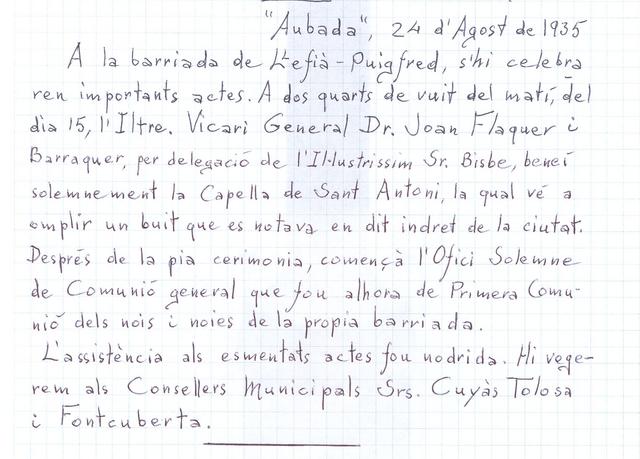 "Aubada", 24 d'Agost de 1935
A la barriada de Llefià-Puigfred, s'hi celebra
ren importants actes. A dos quarts de vuit del matí, del
dia 15, l'Iltre. Vicari General Dr. Joan Flaquer i
Barraquer, per delegació de l'Il·lustrissim Sr. Bisbe, beneí
solemnement la Capella de Sant Antoni, la qual vé a
omplir un buit que es notava en dit indret de la ciutat.
Després de la pia cerimonia, començà l'Ofici Solemne
de Comunió general que fou alhora de Primera Comu-
nió dels nois i noies de la propia barriada.
L'assistència als esmentats actes fou nodrida. Hi vege-
rem als Consellers Municipals Srs. Cuyàs Tolosa
i Fontcuberta.